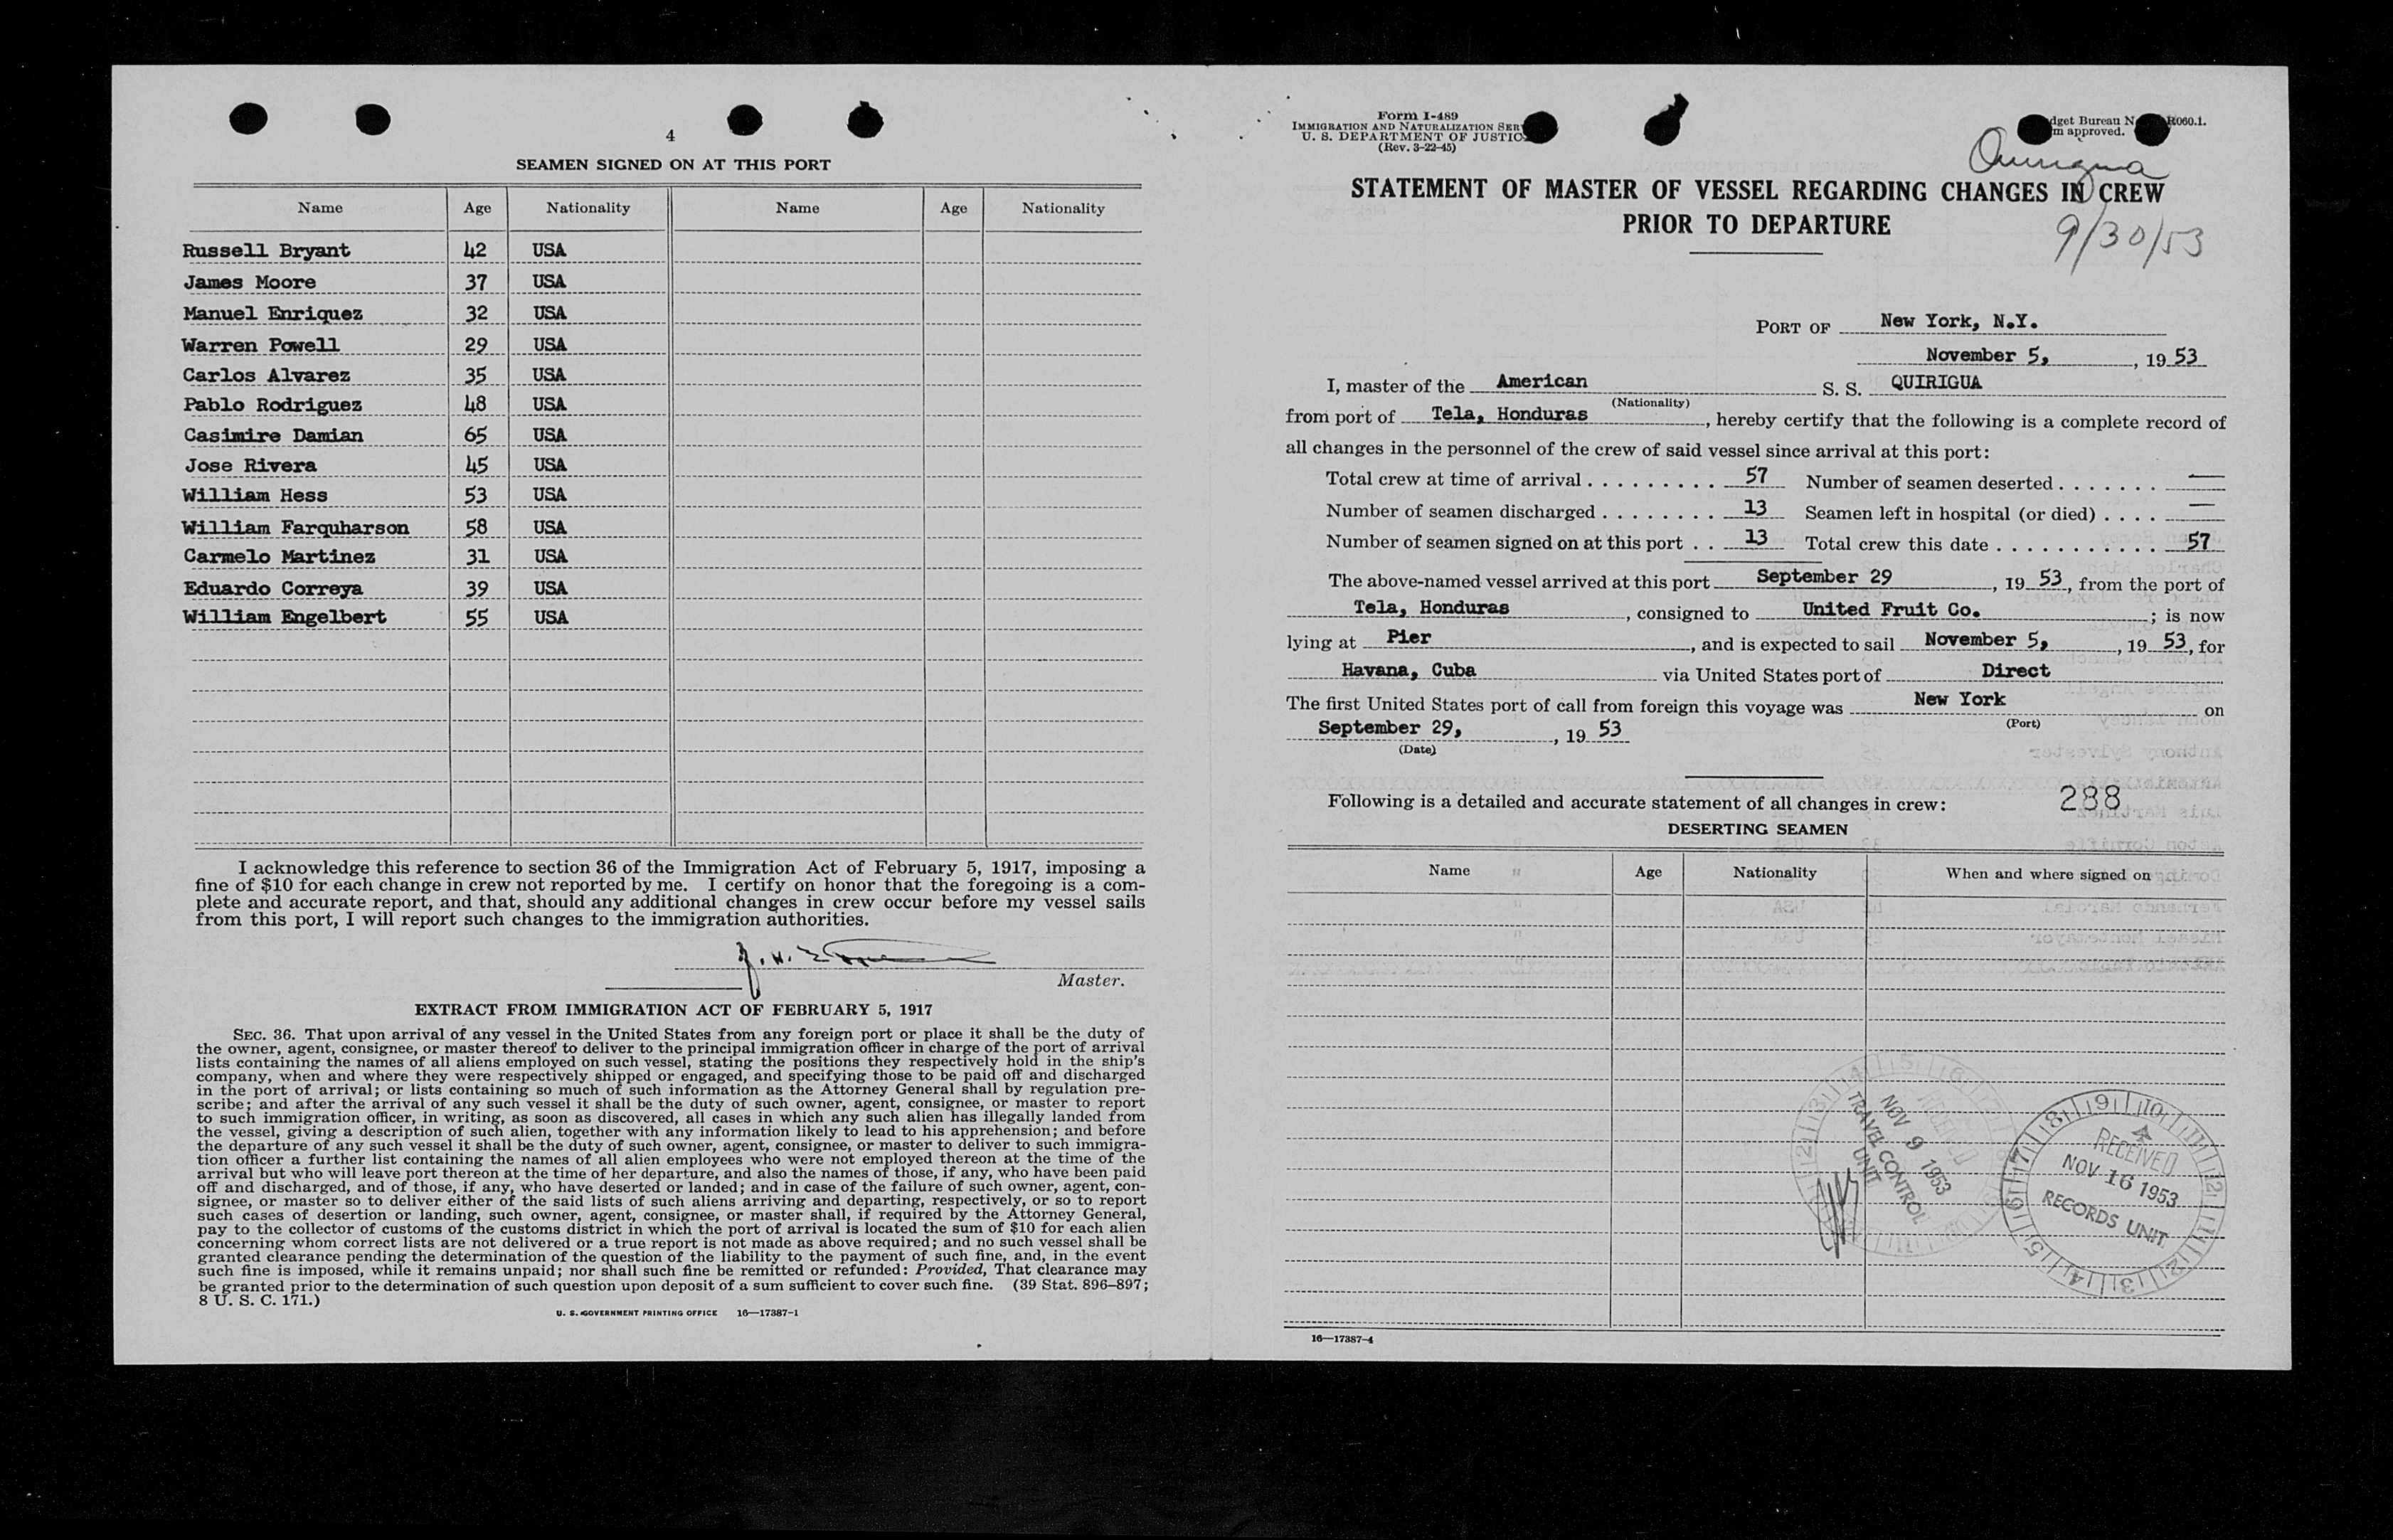 4
SEAMEN SIGNED ON AT THIS PORT
Name Age Nationality Name Age Nationality
Russell Bryant 42 USA
James Moore 37 USA
Manuel Enriquez 32 USA
Warren Powell 29 USA
Carlos Alvarez 35 USA
Pablo Rodriguez 48 USA
Casimire Damian 65 USA
Jose Rivera 45 USA
William Hess 53 USA
William Farquharson 58 USA
Carmelo Martinez 31 USA
Eduardo Correya 39 USA
William Engelbert 55 USA
I acknowledge this reference to section 36 of the Immigration Act of February 5, 1917, imposing a
fine of $10 for each change in crew not reported by me. I certify on honor that the foregoing is a com-
plete and accurate report, and that, should any additional changes in crew occur before my vessel sails
from this port, I will report such changes to the immigration authorities.
Master.
EXTRACT FROM IMMIGRATION ACT OF FEBRUARY 5, 1917
SEC. 36. That upon arrival of any vessel in the United States from any foreign port or place it shall be the duty of
the owner, agent, consignee, or master thereof to deliver to the principal immigration officer in charge of the port of arrival
lists containing the names of all aliens employed on such vessel, stating the positions they respectively hold in the ship's
company, when and where they were respectively shipped or engaged, and specifying those to be paid off and discharged
in the port of arrival; or lists containing so much of such information as the Attorney General shall by regulation pre-
scribe; and after the arrival of any such vessel it shall be the duty of such owner, agent, consignee, or master to report
to such immigration officer, in writing, as soon as discovered, all cases in which any such alien has illegally landed from
the vessel, giving a description of such alien, together with any information likely to lead to his apprehension; and before
the departure of any such vessel it shall be the duty of such owner, agent, consignee, or master to deliver to such immigra-
tion officer a further list containing the names of all alien employees who were not employed thereon at the time of the
arrival but who will leave port thereon at the time of her departure, and also the names of those, if any, who have been paid
off and discharged, and of those, if any, who have deserted or landed; and in case of the failure of such owner, agent, con-
signee, or master so to deliver either of the said lists of such aliens arriving and departing, respectively, or so to report
such cases of desertion or landing, such owner, agent, consignee, or master shall, if required by the Attorney General,
pay to the collector of customs of the customs district in which the port of arrival is located the sum of $10 for each alien
concerning whom correct lists are not delivered or a true report is not made as above required; and no such vessel shall be
granted clearance pending the determination of the question of the liability to the payment of such fine, and, in the event
such fine is imposed, while it remains unpaid; nor shall such fine be remitted or refunded: Provided, That clearance may
be granted prior to the determination of such question upon deposit of a sum sufficient to cover such fine. (39 Stat. 896–897;
8 U. S. C. 171.)
U. S. GOVERNMENT PRINTING OFFICE 16—17387-1
Form I-489
IMMIGRATION AND NATURALIZATION SER
U. S. DEPARTMENT OF JUSTIC
(Rev. 3-22-45)
dget Bureau N R060.1.
m approved.
Quirigua
STATEMENT OF MASTER OF VESSEL REGARDING CHANGES IN CREW
PRIOR TO DEPARTURE
9/30/53
PORT OF New York, N.Y.
November 5, , 19 53
I, master of the American S. S. QUIRIGUA
(Nationality)
from port of Tela, Honduras , hereby certify that the following is a complete record of
all changes in the personnel of the crew of said vessel since arrival at this port:
Total crew at time of arrival . . . . . . . . . 57 Number of seamen deserted . . . . . . . —
Number of seamen discharged . . . . . . . . 13 Seamen left in hospital (or died) . . . . —
Number of seamen signed on at this port . . 13 Total crew this date . . . . . . . . . . . 57
The above-named vessel arrived at this port September 29 , 19 53, from the port of
Tela, Honduras , consigned to United Fruit Co. ; is now
lying at Pier , and is expected to sail November 5, , 19 53, for
Havana, Cuba via United States port of Direct
The first United States port of call from foreign this voyage was New York on
(Port)
September 29, , 19 53
(Date)
Following is a detailed and accurate statement of all changes in crew: 288
DESERTING SEAMEN
Name Age Nationality When and where signed on
NOV 9 1953
TRAVEL CONTROL
UNIT
RECEIVED
NOV 16 1953
RECORDS UNIT
16—17387-4